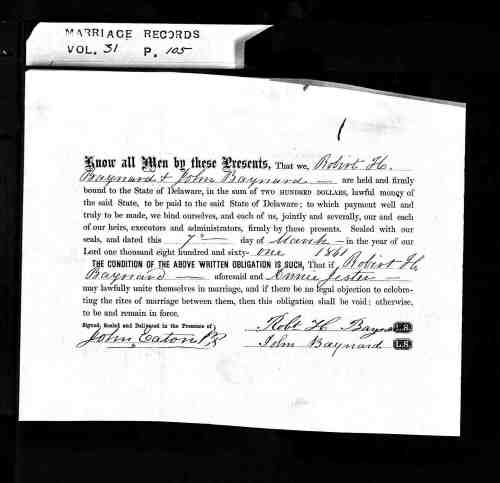 MARRIAGE RECORDS
VOL. 31 P. 105
Know all Men by these Presents, That we, Robert H.
Baynard & John Baynard — are held and firmly
bound to the State of Delaware, in the sum of TWO HUNDRED DOLLARS, lawful money of
the said State, to be paid to the said State of Delaware; to which payment well and
truly to be made, we bind ourselves, and each of us, jointly and severally, our and each
of our heirs, executors and administrators, firmly by these presents. Sealed with our
seals, and dated this 7th day of March — in the year of our
Lord one thousand eight hundred and sixty- one 1861
THE CONDITION OF THE ABOVE WRITTEN OBLIGATION IS SUCH, That if Robert H.
Baynard — aforesaid and Annie Jester —
may lawfully unite themselves in marriage, and if there be no legal objection to celebra-
ting the rites of marriage between them, then this obligation shall be void; otherwise,
to be and remain in force.
Signed, Sealed and Delivered in the Presence of
Robt H Baynard L.S.
John Eaton
John Baynard L.S.